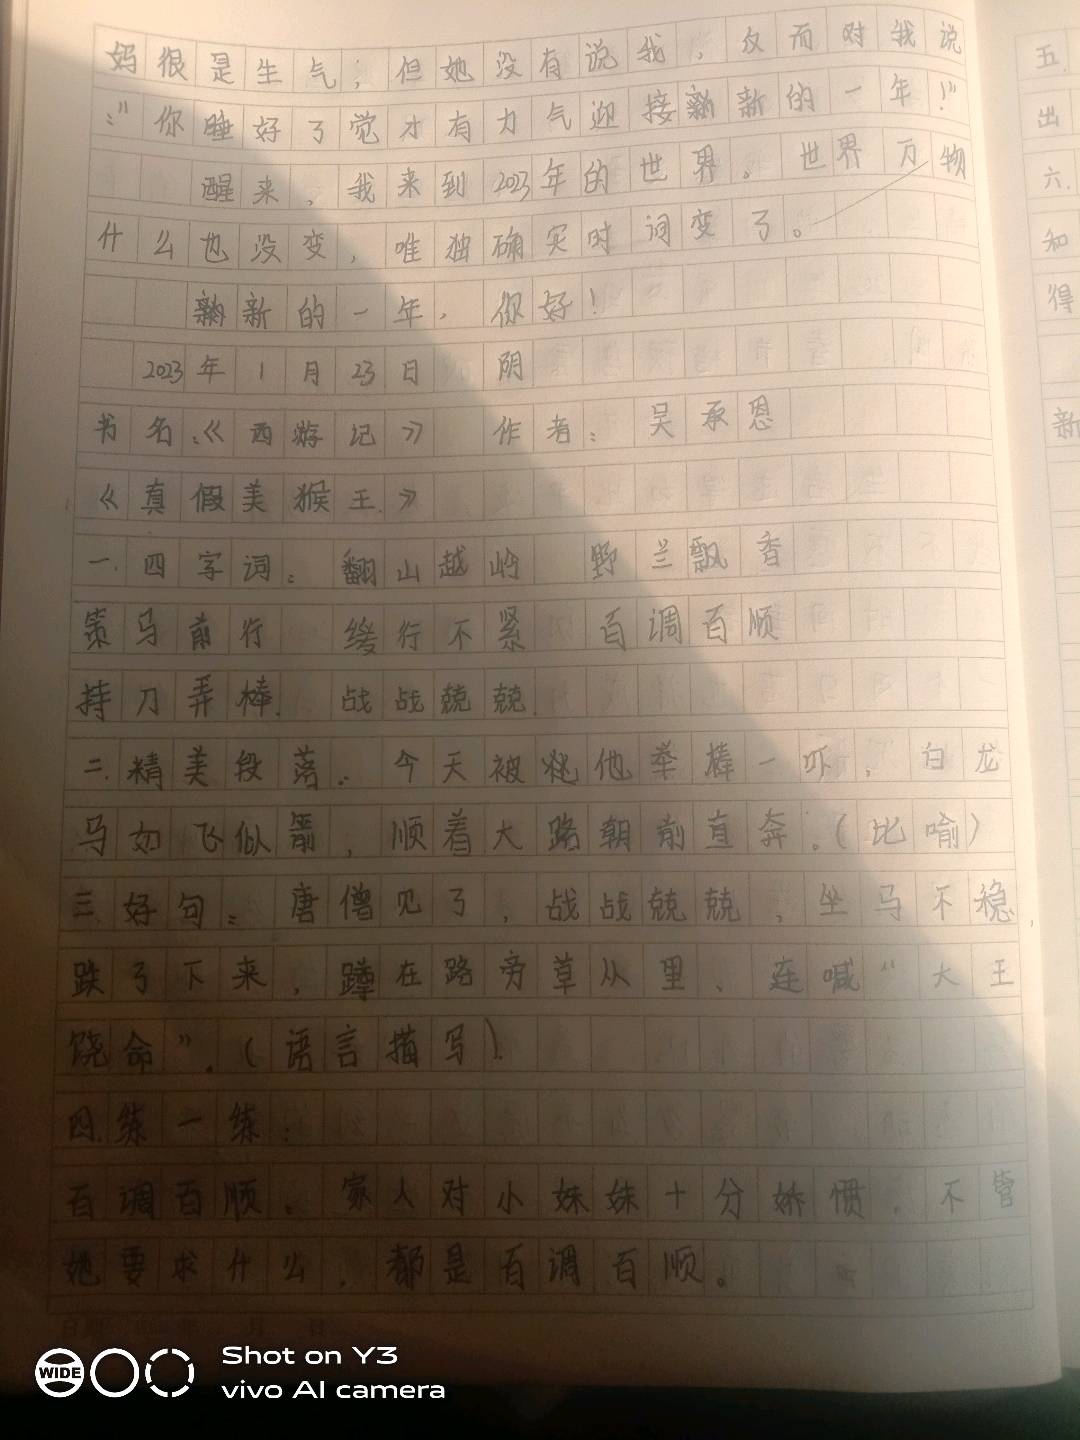 妈很是生气，但她没有说我，反而对我说
：“你睡好了觉才有力气迎接新的一年！”
醒来，我来到2023年的世界。世界万物
什么也没变，唯独确实时间变了。
新的一年，你好！
2023年1月23日 阴
书名：《西游记》 作者：吴承恩
《真假美猴王》
一.四字词： 翻山越岭 野兰飘香
策马前行 缓行不紧 百调百顺
持刀弄棒 战战兢兢
二.精美段落：今天被他举棒一吓，白龙
马如飞似箭，顺着大路朝前直奔。（比喻）
三.好句：唐僧见了，战战兢兢，坐马不稳，
跌了下来，蹲在路旁草从里，连喊“大王
饶命”。（语言描写）
四.练一练：
百调百顺：家人对小妹妹十分娇惯，不管
她要求什么，都是百调百顺。
五.
出
六.
和
得
新
WIDE
Shot on Y3
vivo AI camera